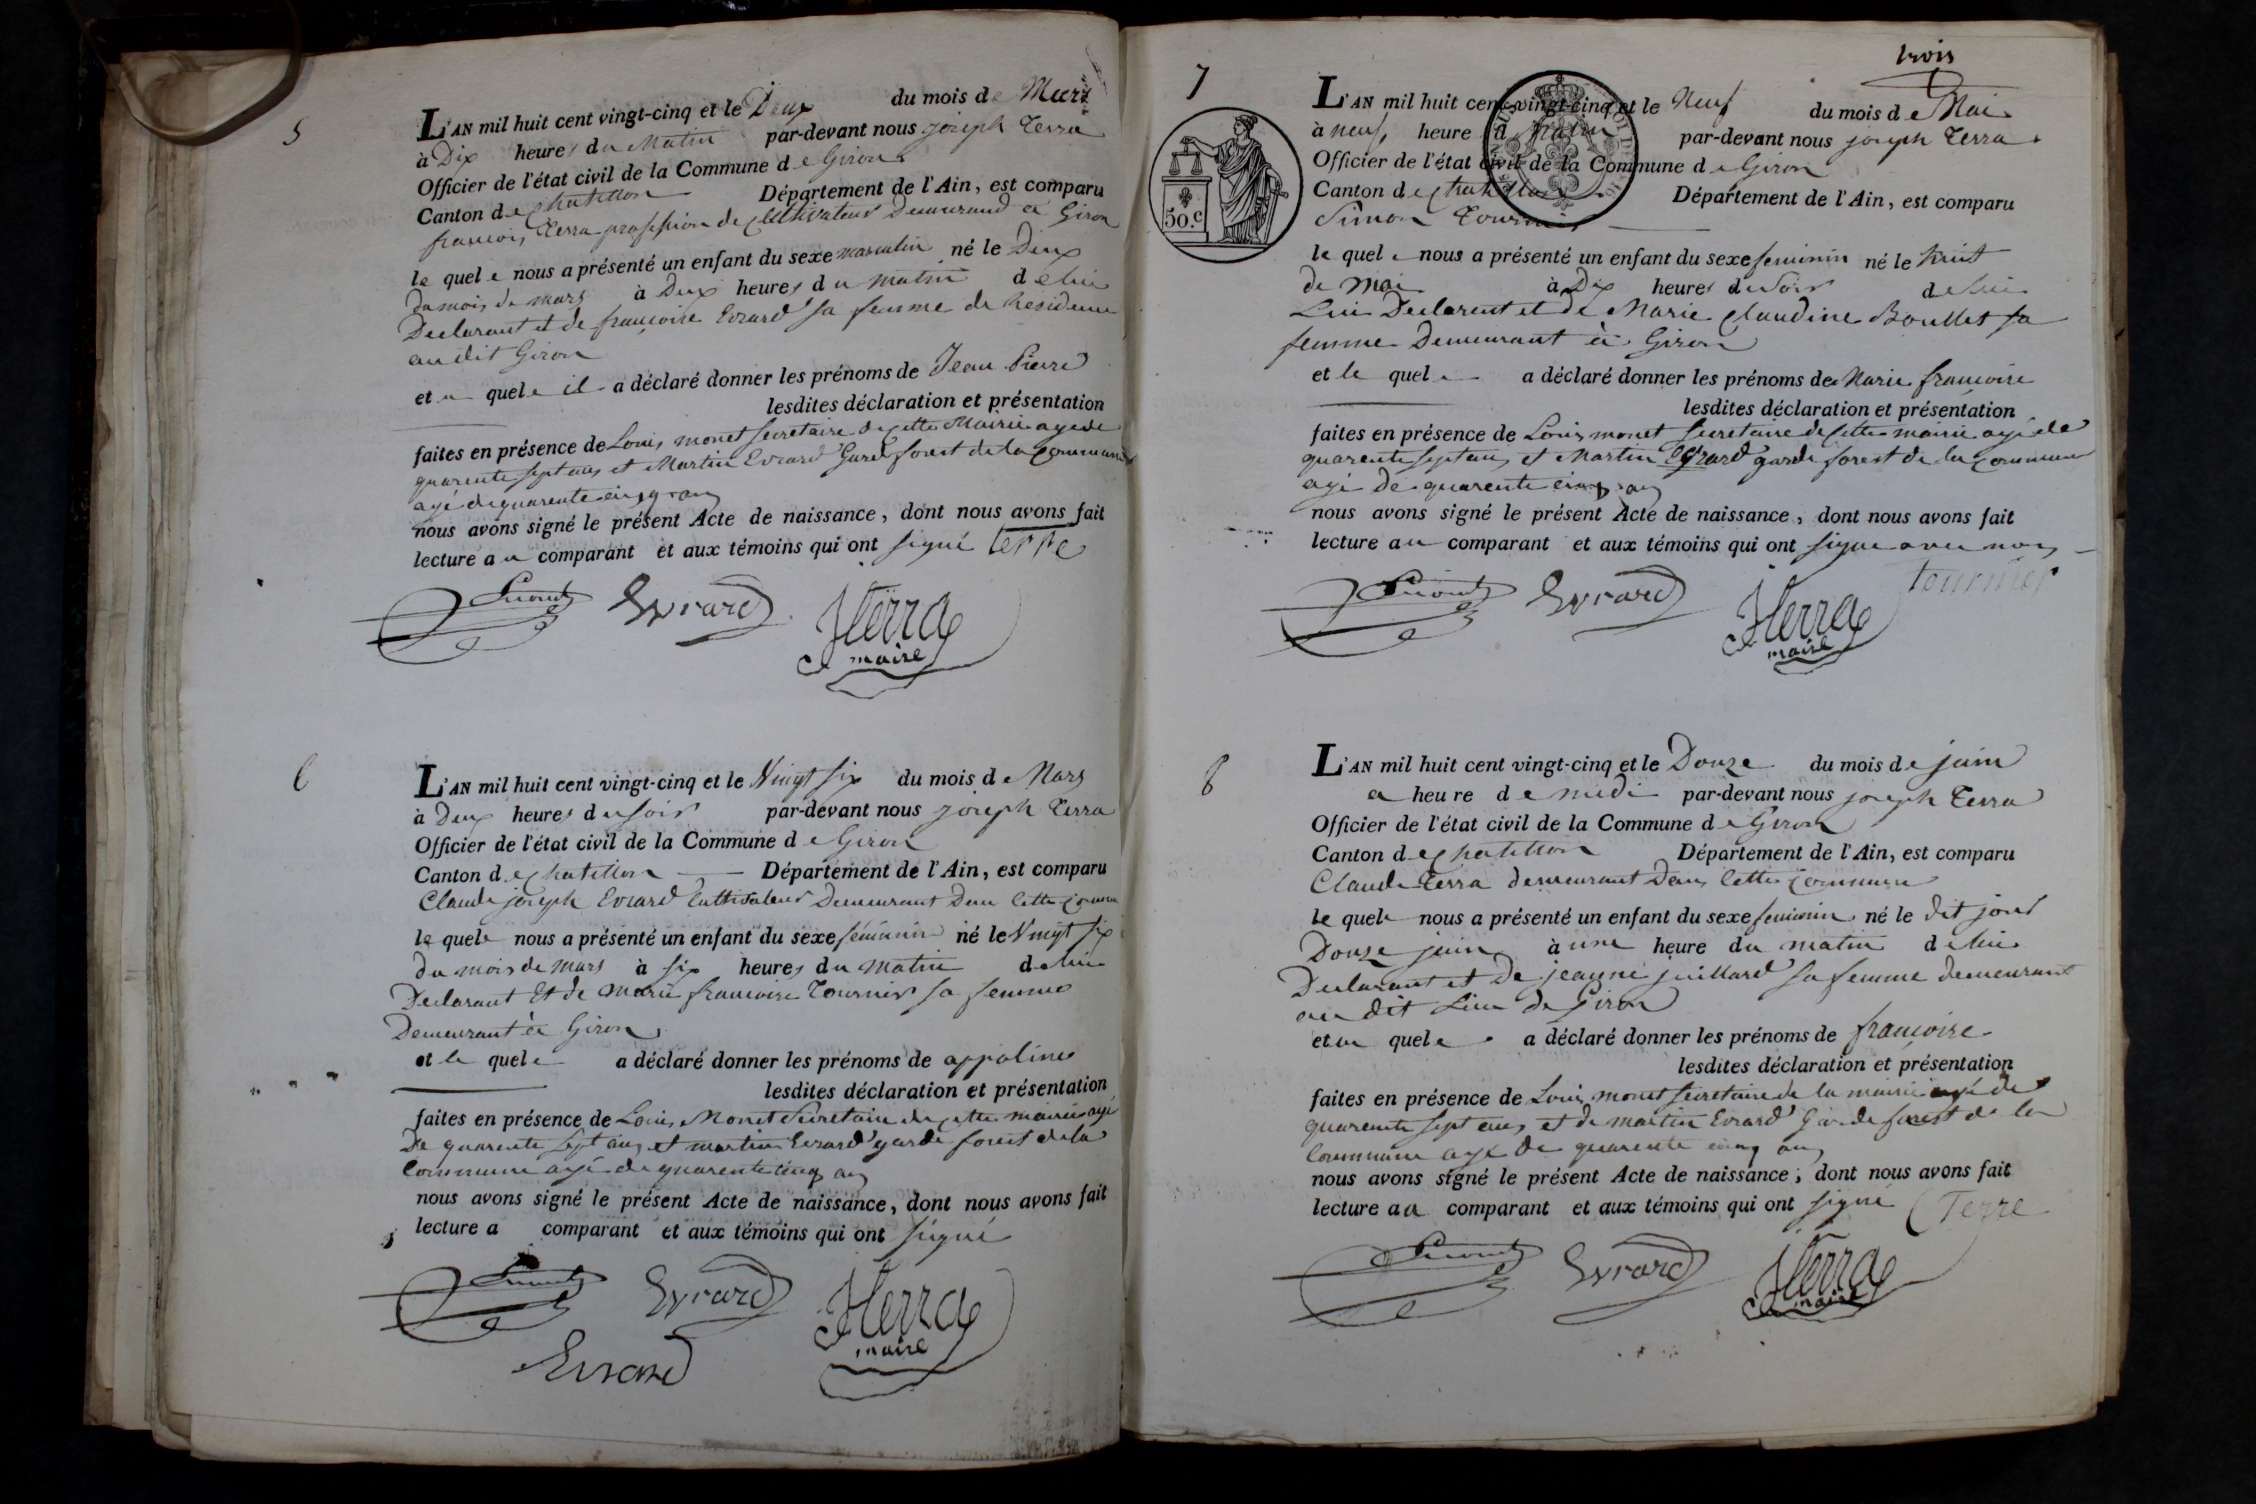 5
L'AN mil huit cent vingt-cinq et le Deux du mois de Mars
à Dix heures du Matin par-devant nous joseph Terra
Officier de l'état civil de la Commune de Giron
Canton de chatillon Département de l'Ain, est comparu
francois Terra profession de Cultivateur Demeurand a Giron
le quel e nous a présenté un enfant du sexe masculin né le Deux
du mois de mars à Deux heures du matin de lui
Declarant et de francoise Evrard sa femme de Residence
au dit Giron
et a quel e il a déclaré donner les prénoms de Jean Pierre
lesdites déclaration et présentation
faites en présence de Louis monet secretaire de cette Mairie age de
quarente sept ans et Martin Evrard Gard forest de la commune
agé de quarente cinq ans
nous avons signé le présent Acte de naissance, dont nous avons fait
lecture au comparant et aux témoins qui ont signé terre
Evrard
JTerra
maire
6
L'AN mil huit cent vingt-cinq et le Vingt six du mois de Mars
à Deux heures du soir par-devant nous joseph Terra
Officier de l'état civil de la Commune de Giron
Canton de chatillon Département de l'Ain, est comparu
Claude joseph Evrard Cultivateur Demeurant Dans cette commune
le quel e nous a présenté un enfant du sexe féminin né le Vingt six
du mois de mars à six heures du matin de lui
Declarant Et de marie francoise Tournier sa femme
Demeurant à Giron
et le quel e a déclaré donner les prénoms de appoline
lesdites déclaration et présentation
faites en présence de Louis Monet Secretaire de cette mairie agé
De quarente sept ans et martin Evrard garde forest de la
Commune agé de quarente cinq ans
nous avons signé le présent Acte de naissance, dont nous avons fait
lecture a comparant et aux témoins qui ont signé
Evrard
JTerra
maire
Evrard
trois
7
50.c
L'AN mil huit cent vingt-cinq et le Neuf du mois de Mai
à neuf heure d matin par-devant nous joseph Terra
Officier de l'état civil de la Commune de Giron
Canton de chatillon Département de l'Ain, est comparu
Simon Tournier
le quel e nous a présenté un enfant du sexe feminin né le huit
de mai à Dix heures du Soir de lui
Lui Declarent et de Marie Claudine Boullet sa
femme Demeurant à Giron
et le quel e a déclaré donner les prénoms de Marie francoise
lesdites déclaration et présentation
faites en présence de Louis monet secretaire de cette mairie agé de
quarente sept ans et Martin Evrard garde forest de la commune
agé de quarente cinq ans
nous avons signé le présent Acte de naissance, dont nous avons fait
lecture au comparant et aux témoins qui ont signe avec nous
Evrard
JTerra
maire
Tournier
8
L'AN mil huit cent vingt-cinq et le Douze du mois de juin
a heure de midi par-devant nous joseph Terra
Officier de l'état civil de la Commune de Giron
Canton de chatillon Département de l'Ain, est comparu
Claude Terra demeurant Dans Cette commune
le quel e nous a présenté un enfant du sexe feminin né le dit jour
Douze juin à une heure du matin de lui
Declarant et de jeanne juillard sa femme demeurant
au dit Lieu de Giron
et a quel e a déclaré donner les prénoms de francoise
lesdites déclaration et présentation
faites en présence de Louis monet secretaire de la mairie agé de
quarente sept ans et de martin Evrard Garde forest de la
Commune agé de quarente cinq ans
nous avons signé le présent Acte de naissance, dont nous avons fait
lecture au comparant et aux témoins qui ont signé Terre
Evrard
JTerra
maire